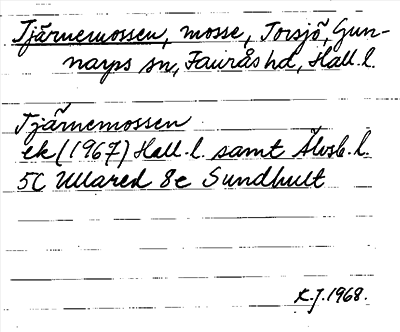 Tjärnemossen, mosse, Torsjö, Gun-
narps sn, Fauråshd, Hall. l.
Tjärnemossen
ek (1967) Hall. l. samt Älvsb. l.
5C Ullared 8e Sundhult
K.J. 1968.